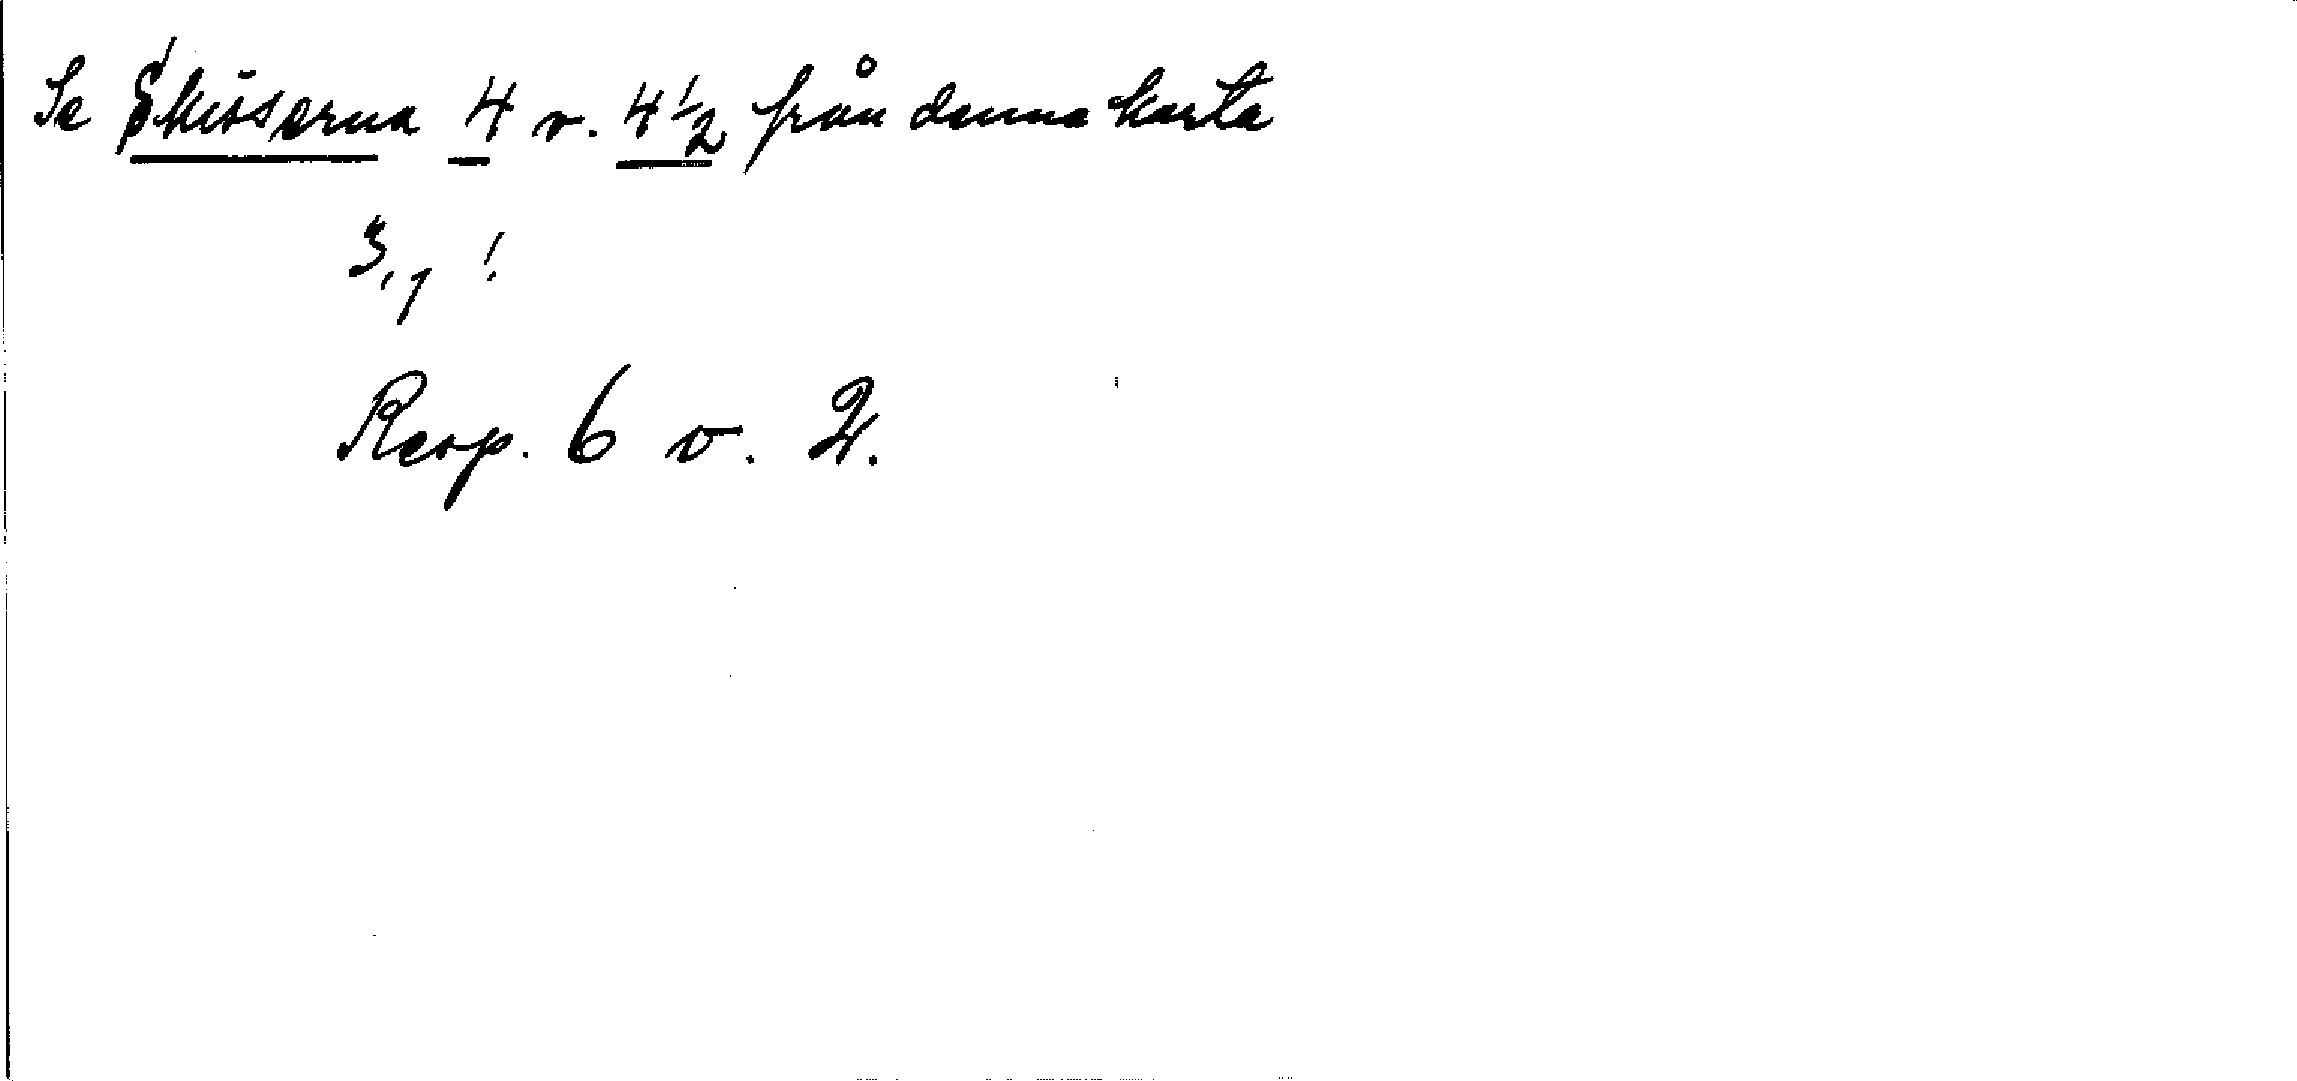 Se Skisserna 4 v. 4½ från denna karta
3,1 !
Resp. 6 v. 2.